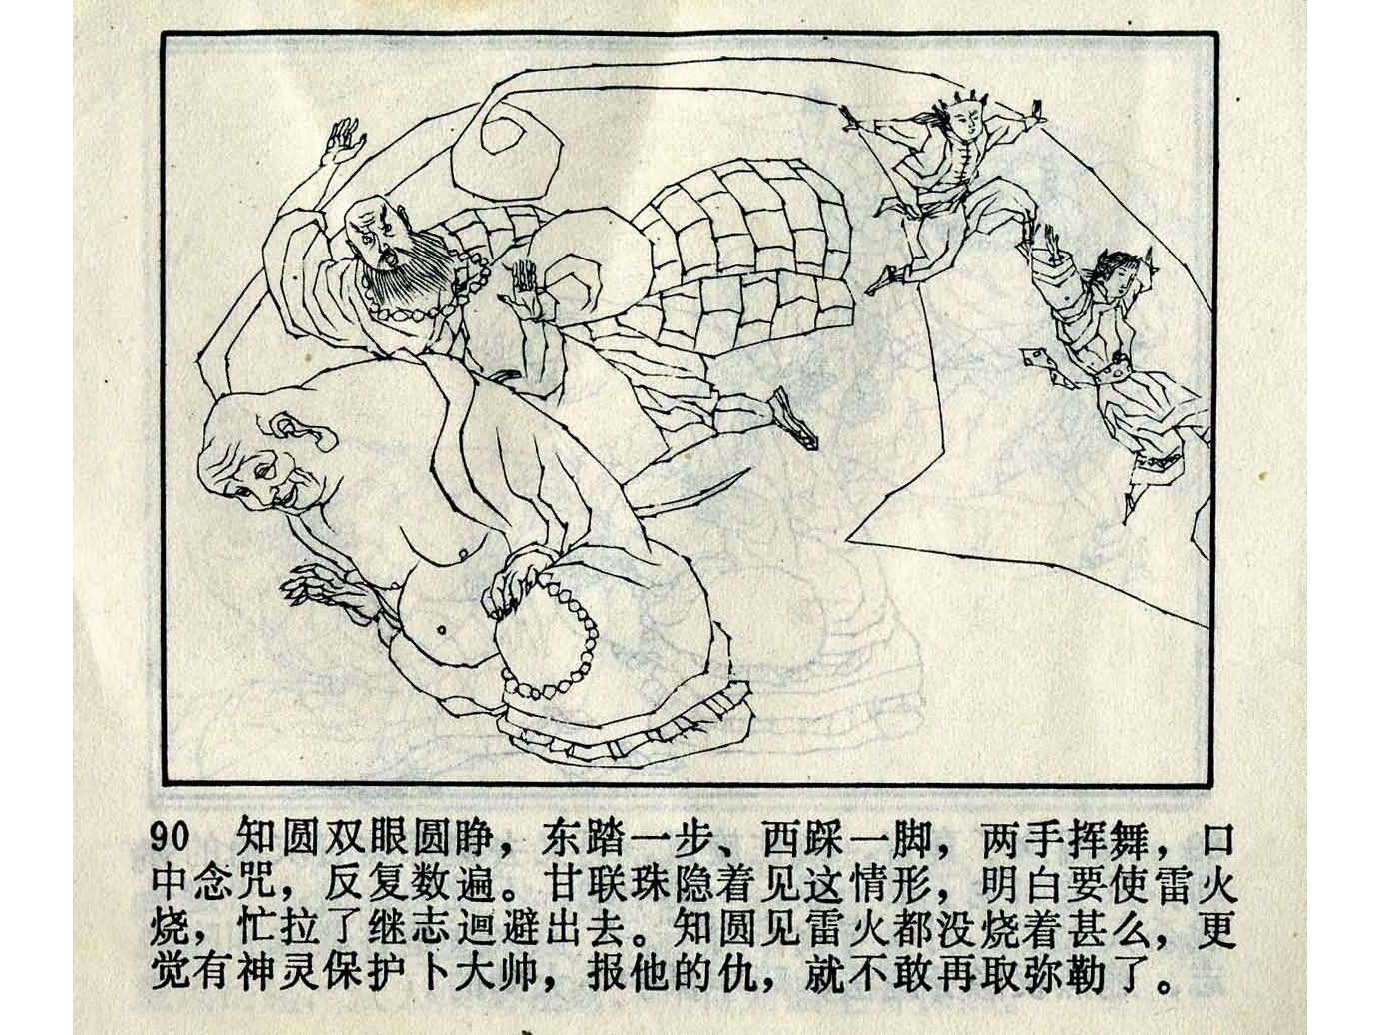 90 知圆双眼圆睁，东踏一步、西踩一脚，两手挥舞，口
中念咒，反复数遍。甘联珠隐着见这情形，明白要使雷火
烧，忙拉了继志迴避出去。知圆见雷火都没烧着甚么，更
觉有神灵保护卜大帅，报他的仇，就不敢再取弥勒了。